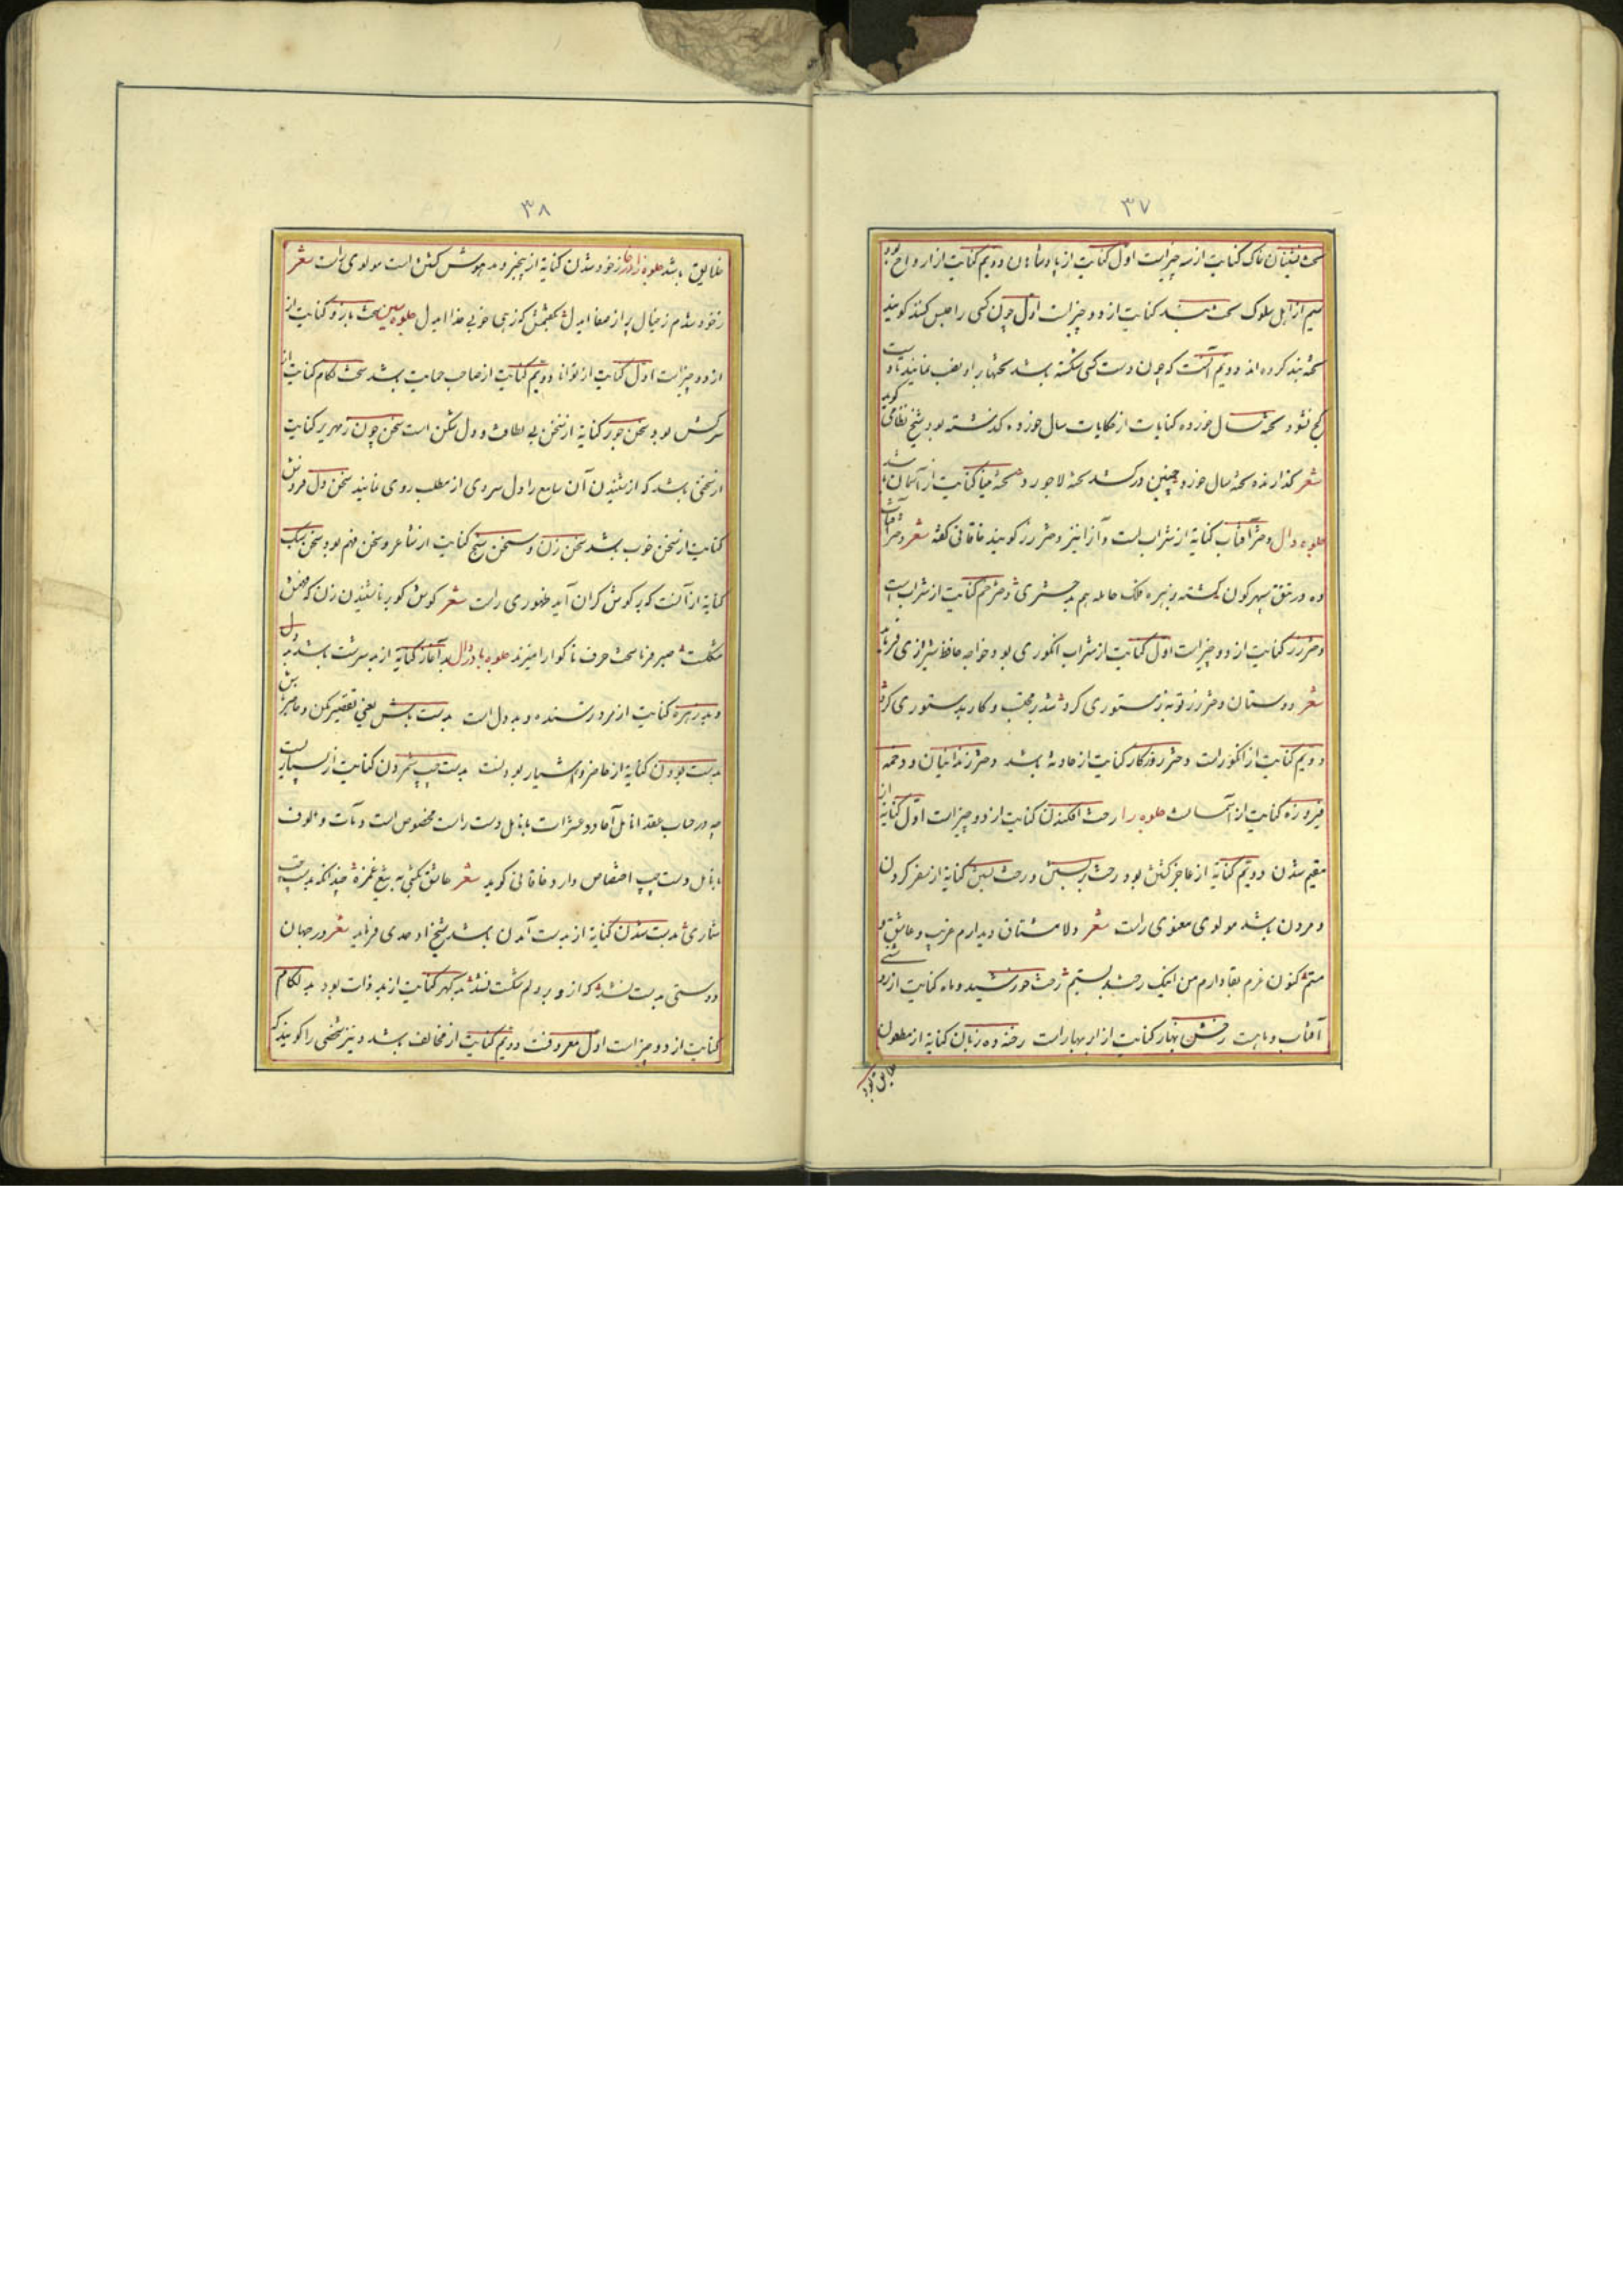 ۳۷
تخت نشینان خاک کنایت از سه چیز است اول کنایت از پادشاهان دوویم کنایت از ارواح بود
سیم از اهل سلوک تخته بند کنایت از دو چیز است اول چون کسی را حبس کنند کویند
تخته بند کرده اند دوویم آنست که چون دست کسی شکسته باشد تختها بر او نصب نمایند تا
کج نشود تخته سال خورده کنایات از حکایات سال خورده کذشته بود شیخ نظامی کوید
شعر کذارنده تخته سال خورد چنین درکشد تخته لاجورد تخته مینا کنایت از آسمان باشد
جلوه دال دختر آفتاب کنایة از شراب است و آنرا نیز دختر رز کویند خاقانی کفته شعر دختر آفتاب
ده در تتق سپهر کون کشته بزهره فلک حامله هم بدختری دختر خم کنایت از شراب است
دختر رز کنایت از دو چیز است اول کنایت از شراب انکوری بود خواجه حافظ شیرازی فرماید
شعر دوستان دختر رز توبه ز مستوری کرد شد بر محتسب و کار بدستوری کرد
دوویم کنایت از انکور است دختر روزکار کنایت از حادثه باشد دختر زندانیان و دخمه
فیروزه کنایت از آسمانست جلوه را رخت افکندن کنایت از دو چیز است اول کنایة از
مقیم شدن دوویم کنایة از عاجز کشتن بود رخت بربستن و رخت بستن کنایة از سفر کردن
و مردن باشد مولوی معنوی راست شعر دلا مشتاق دیدارم غریب و عاشق و
مستم کنون عزم بقا دارم من اینک رخت بربستم رخت خورشید و ماه کنایت از روشنی
آفتاب و ماهست رخش بهار کنایت از ابر بهار است رخنه ده زبان کنایة از مطعون
خلایق بود
۳۸
خلایق باشد جلوه زا ز خود شدن کنایة از بیخبر و مدهوش کشتن است مولوی راست شعر
ز خود شدم ز جمال پر از صفا ای دل بکفتمش که زهی خوبی خدا ای دل جلوه سین سخت بازو کنایت از
از دو چیز است اول کنایت از توانا دوویم کنایت از صاحب حمایت باشد سخت لکام کنایت از
سرکش بود سخن جور کنایة از سخن بی لطافت و دل شکن است سخن چون زمهریر کنایت
از سخنی باشد که از شنیدن آن سامع را دل سردی از مطلب روی نماید سخن دل فروش
کنایت از سخن خوب باشد سخن زن و سخن سنج کنایت از شاعر و سخن فهم بود سخن سبک
کنایة از آنست که بر کوش کران آید ظهوری راست شعر کوش کو بر ناشنیدن زن که فهمش
مشکلست صبر فرما سخت حرف ناکوارا میزند جلوه با و دال بد آغاز کنایة از بد سرشت باشد بد دل
و بد زهره کنایت از مرد ترسنده و بد دل است بدست باش یعنی تقصیر مکن و حاضر باش
بدست بودن کنایة از حاضر و هشیار بودنست بدست چپ شمردن کنایت از بسیاریست
چه در حساب عقد انامل آحاد و عشرات بانامل دست راست مخصوص است و مآت و الوف
بانامل دست چپ اختصاص دارد خاقانی کوید شعر عاشق بکشی به تیغ غمزه چندانکه بدست چپ
شماری بدست شدن کنایة از بدست آمدن باشد شیخ اوحدی فرماید شعر در جهان
دوستی بدست نشد که از و بر دلم شکست نشد بد کهر کنایت از بد ذات بود بد لکام
کنایت از دو چیز است اول معروفست دوویم کنایت از مخالف باشد و نیز شخصی را کویند که